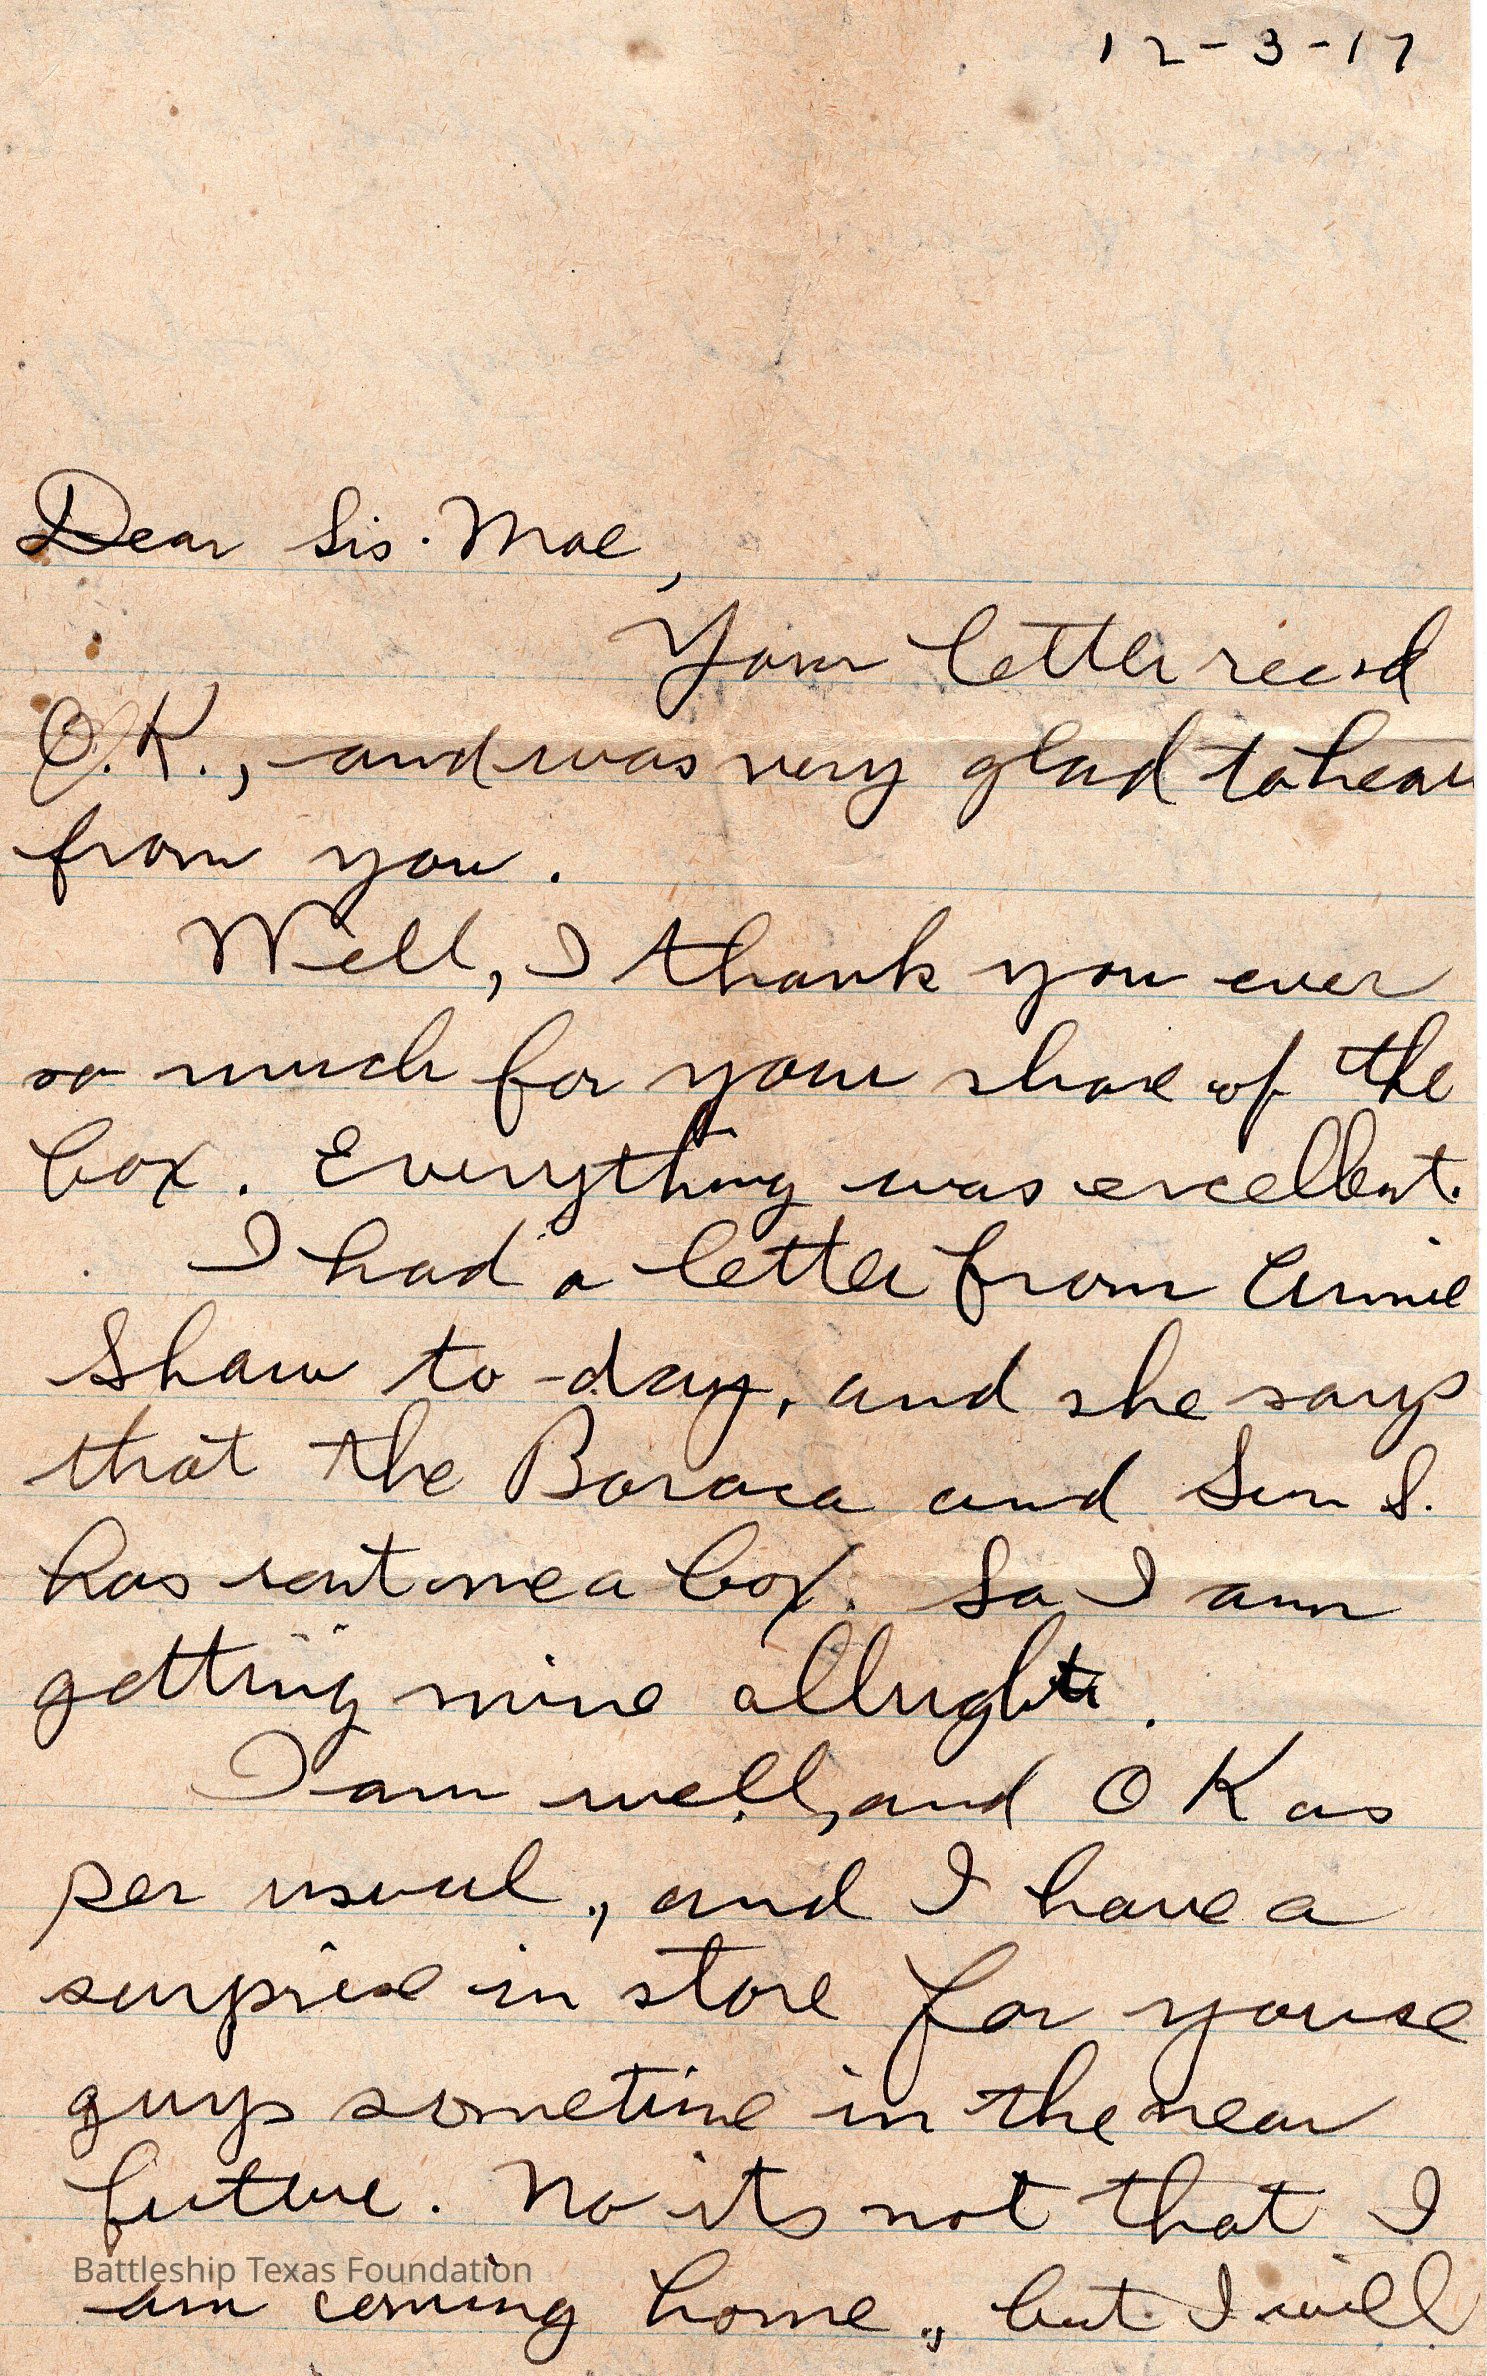 12-3-17
Dear Sis. Mae,
Your letter recvd
O.K., and was very glad to hear
from you.
Well, I thank you ever
so much for your share of the
box. Everything was excellent.
I had a letter from Annie
Shaw to-day, and she says
that the Baraca and Sun S.
has sent me a box. So I am
getting mine allright.
I am well, and O K as
per usual, and I have a
surprise in store for youse
guys sometime in the near
future. No its not that I
Battleship Texas Foundation
am coming home, but I will